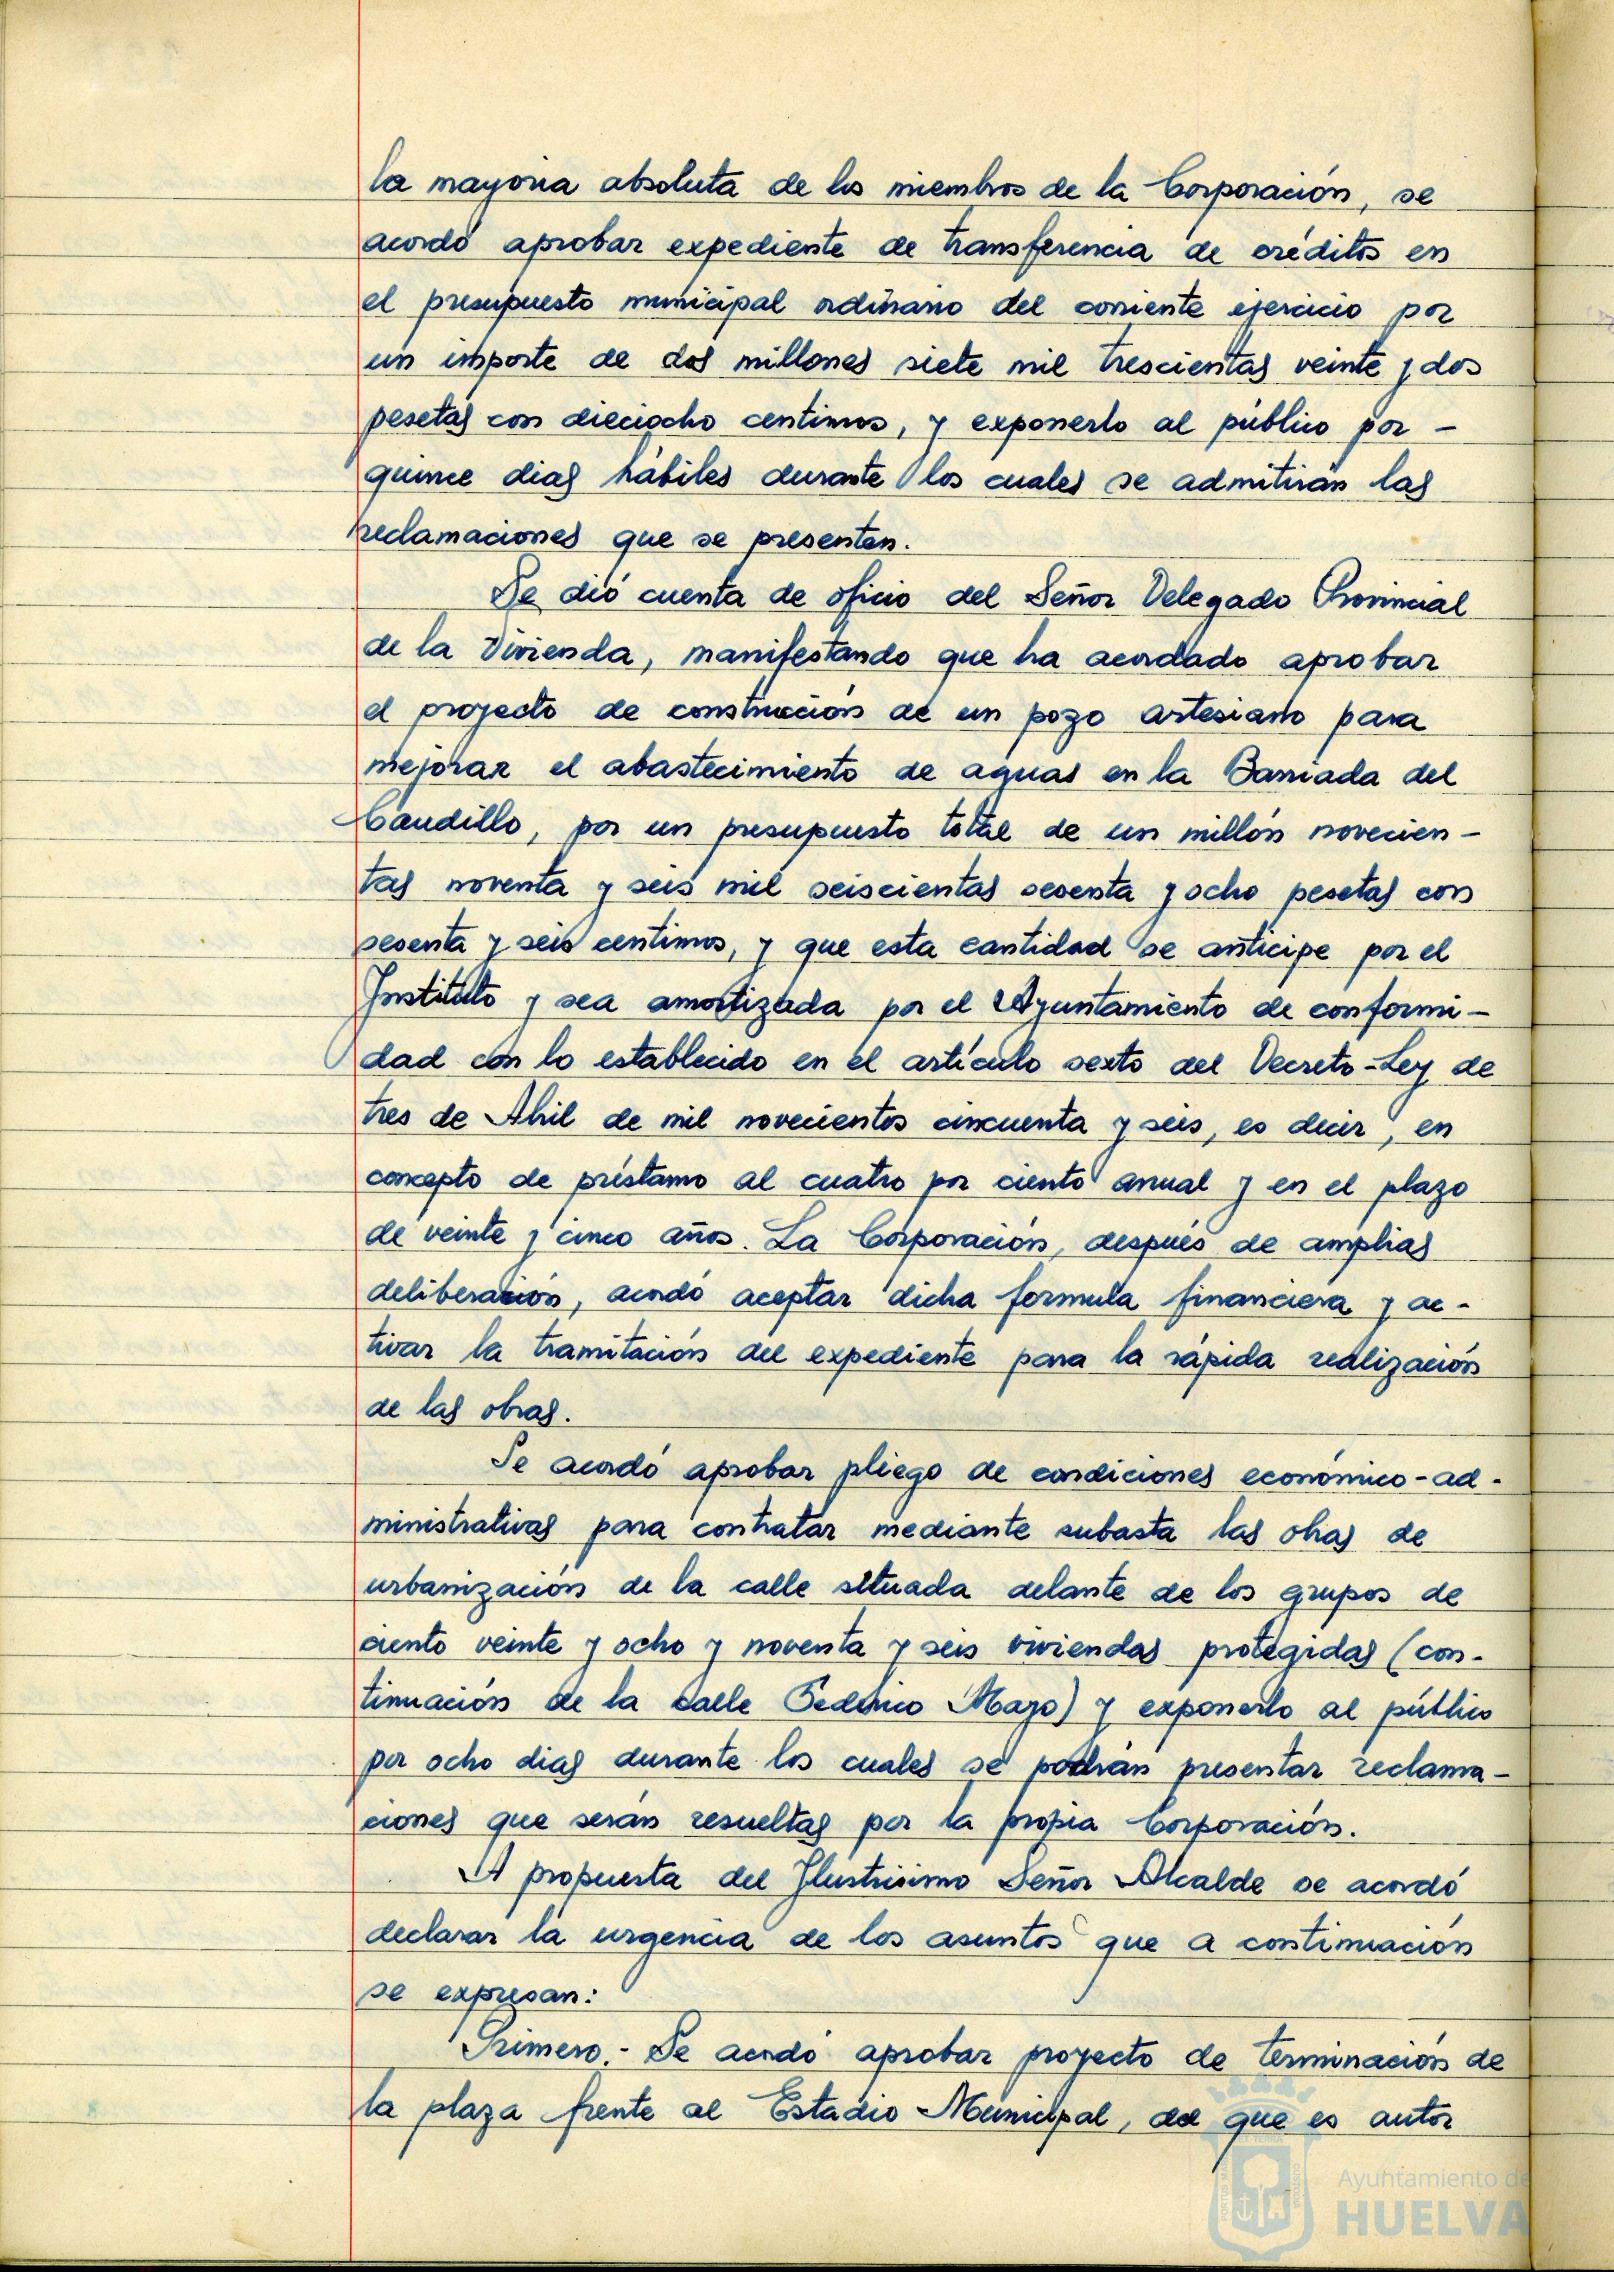 la mayoria absoluta de los miembros de la Corporación, se
acordó aprobar expediente de transferencia de créditos en
el presupuesto municipal ordinario del corriente ejercicio por
un importe de dos millones siete mil trescientas veinte y dos
pesetas con dieciocho centimos, y exponerlo al público por -
quince dias hábiles durante los cuales se admitirán las
reclamaciones que se presenten.
Se dió cuenta de oficio del Señor Delegado Provincial
de la Vivienda, manifestando que ha acordado aprobar
el proyecto de construcción de un pozo artesiano para
mejorar el abastecimiento de aguas en la Barriada del
Caudillo, por un presupuesto total de un millón novecien-
tas noventa y seis mil seiscientas sesenta y ocho pesetas con
sesenta y seis centimos, y que esta cantidad se anticipe por el
Instituto y sea amortizada por el Ayuntamiento de conformi-
dad con lo establecido en el artículo sexto del Decreto-Ley de
tres de Abril de mil novecientos cincuenta y seis, es decir, en
concepto de préstamo al cuatro por ciento anual y en el plazo
de veinte y cinco años. La Corporación, después de amplias
deliberación, acordó aceptar dicha formula financiera y ac-
tivar la tramitación del expediente para la rápida realización
de las obras.
Se acordó aprobar pliego de condiciones económico-ad-
ministrativas para contratar mediante subasta las obras de
urbanización de la calle situada delante de los grupos de
ciento veinte y ocho y noventa y seis viviendas protegidas (con-
tinuación de la calle Federico Mayo) y exponerlo al público
por ocho dias durante los cuales se podrán presentar reclama-
ciones que serán resueltas por la propia Corporación.
A propuesta del Ilustrisimo Señor Alcalde se acordó
declarar la urgencia de los asuntos que a continuación
se expresan:
Primero.- Se acordó aprobar proyecto de terminación de
la plaza frente al Estadio Municipal, del que es autor
Ayuntamiento de
HUELVA